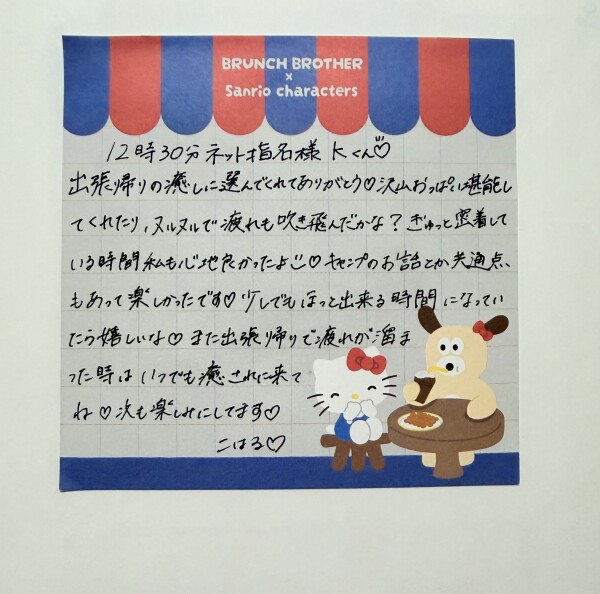 BRUNCH BROTHER
×
Sanrio characters
12時30分ネット指名様 Kくん♡
出張帰りの癒しに選んでくれてありがとう♡沢山おっぱい堪能し
てくれたり、ヌルヌルで疲れも吹き飛んだかな？ぎゅっと密着して
いる時間私も心地良かったよ♡キャンプのお話とか共通点、
もあって楽しかったです♡少しでもほっと出来る時間になってい
たら嬉しいな♡また出張帰りで疲れが溜ま
った時はいつでも癒されに来て
ね♡次も楽しみにしてます♡
こはる♡